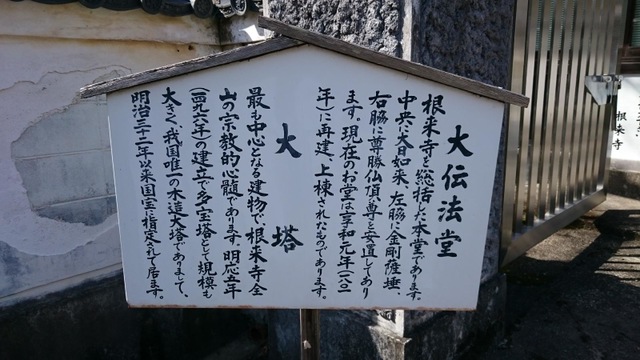 大伝法堂
根来寺を総括した本堂であります。
中央に大日如来、左脇に金剛薩埵、
右脇に尊勝仏頂尊と安置してあり
ます。現在のお堂は享和元年(一八〇一
年)に再建、上棟されたものであります。
大塔
最も中心となる建物で、根来寺全
山の宗教的心髄であります。明応五年
(一四九六年)の建立で多宝塔として規模も
大きく、我国唯一の木造大塔でありまして、
明治三十二年以来国宝に指定されて居ます。
根来寺